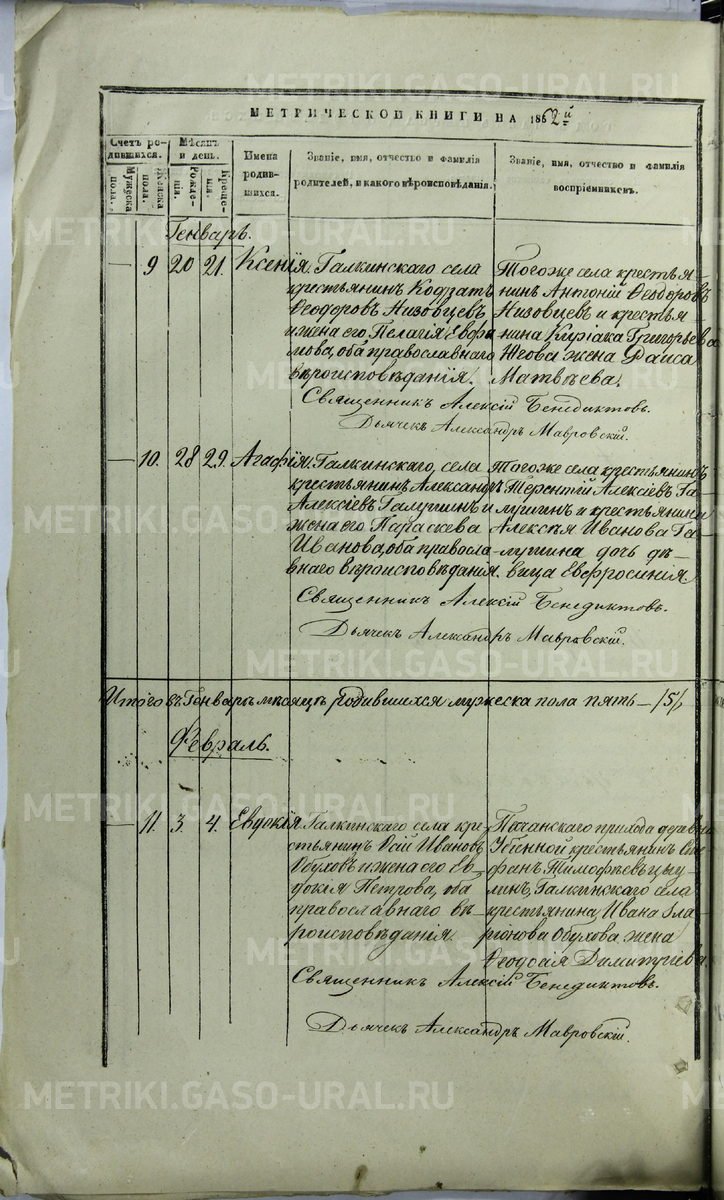 МЕТРИЧЕСКОЙ КНИГИ НА 1862й
Счетъ родившихся.
Мѣсяцъ и день.
Имена родившихся.
Званіе, имя, отчество и фамилія родителей, и какого вѣроисповѣданія.
Званіе, имя, отчество и фамилія воспріемниковъ.
Мужеска пола.
Женска пола.
Рожденія.
Крещенія.
Генварь.
— 9 20 21. Ксенія. Галкинскаго села
крестьянинъ Кодратъ
Ѳеодоровъ Низовцевъ
и жена его Пелагія Евфи
мова, оба православнаго
вѣроисповѣданія.
Тогоже села крестья
нинъ Антоній Ѳеодоровъ
Низовцевъ и крестья
нина Киріака Григорьева
жена Раиса
Матвѣева.
Священникъ Алексій Бенедиктовъ.
Дьячекъ Александръ Мавровскій.
— 10. 28 29. Агафія. Галкинскаго села
крестьянинъ Александръ
Алексіевъ Галушинъ и
жена его Параскева
Иванова, оба правосла
внаго вѣроисповѣданія.
Тогоже села крестьянинъ
Терентій Алексіевъ Га
лушинъ и крестьянина
Алексѣя Иванова Га
лушина дочь дѣ
вица Евфросинія
Священникъ Алексій Бенедиктовъ.
Дьячекъ Александръ Мавровскій.
Итого въ Генварѣ мѣсяцѣ родившихся мужеска пола пять — /5/
Февраль.
— 11. 3. 4. Евдокія Галкинскаго села кре
стьянинъ Ивановъ
Обуховъ и жена его Ев
докія Петрова, оба
православнаго вѣ
роисповѣданія.
прихода деревни
крестьянинъ Сте
фанъ Тимофѣевъ
Галкинскаго села
крестьянина Ивана Ила
ріонова Обухова жена
Ѳеодосія Димитріева.
Священникъ Алексій Бенедиктовъ.
Дьячекъ Александръ Мавровскій.
METRIKI.GASO-URAL.RU